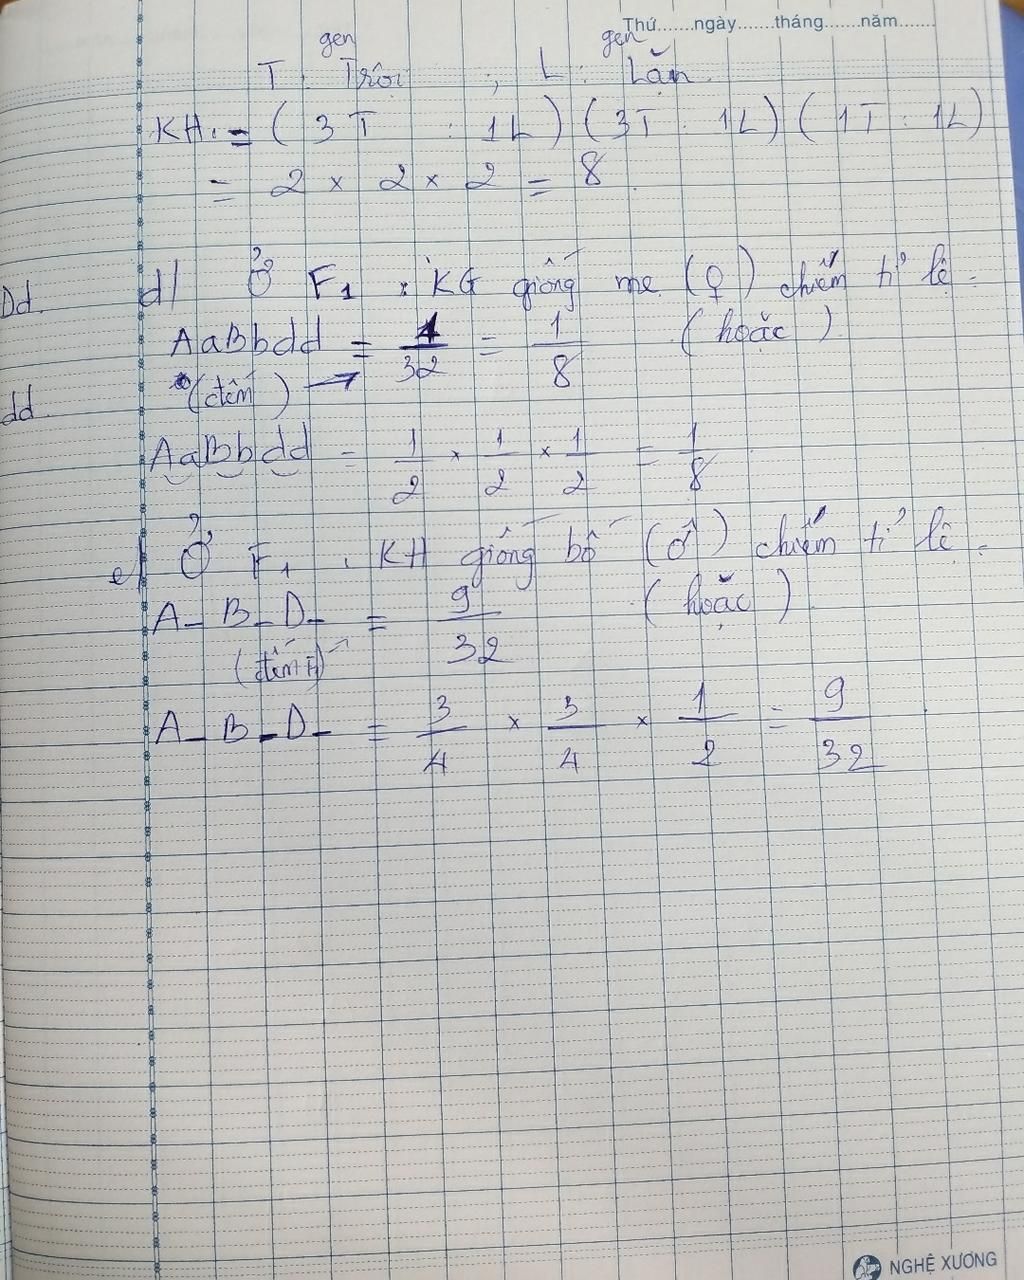 Thứ.......ngày.......tháng.......năm.......
gen gen
T : Trội ; L : Lặn
KH : = ( 3 T : 1L ) ( 3T : 1L ) ( 1T : 1L )
= 2 × 2 × 2 = 8
Dd.
d/ Ở F1 : KG giống mẹ (♀) chiếm tỉ lệ =
AaBbdd = 4/32 = 1/8 ( hoặc )
(đếm) →
dd
AaBbdd = 1/2 × 1/2 × 1/2 = 1/8
e/ Ở F1 : KH giống bố (♂) chiếm tỉ lệ =
A_ B_ D_ = 9/32 ( hoặc )
(đếm F1)
A_ B_ D_ = 3/4 × 3/4 × 1/2 = 9/32
NGHỆ XƯƠNG